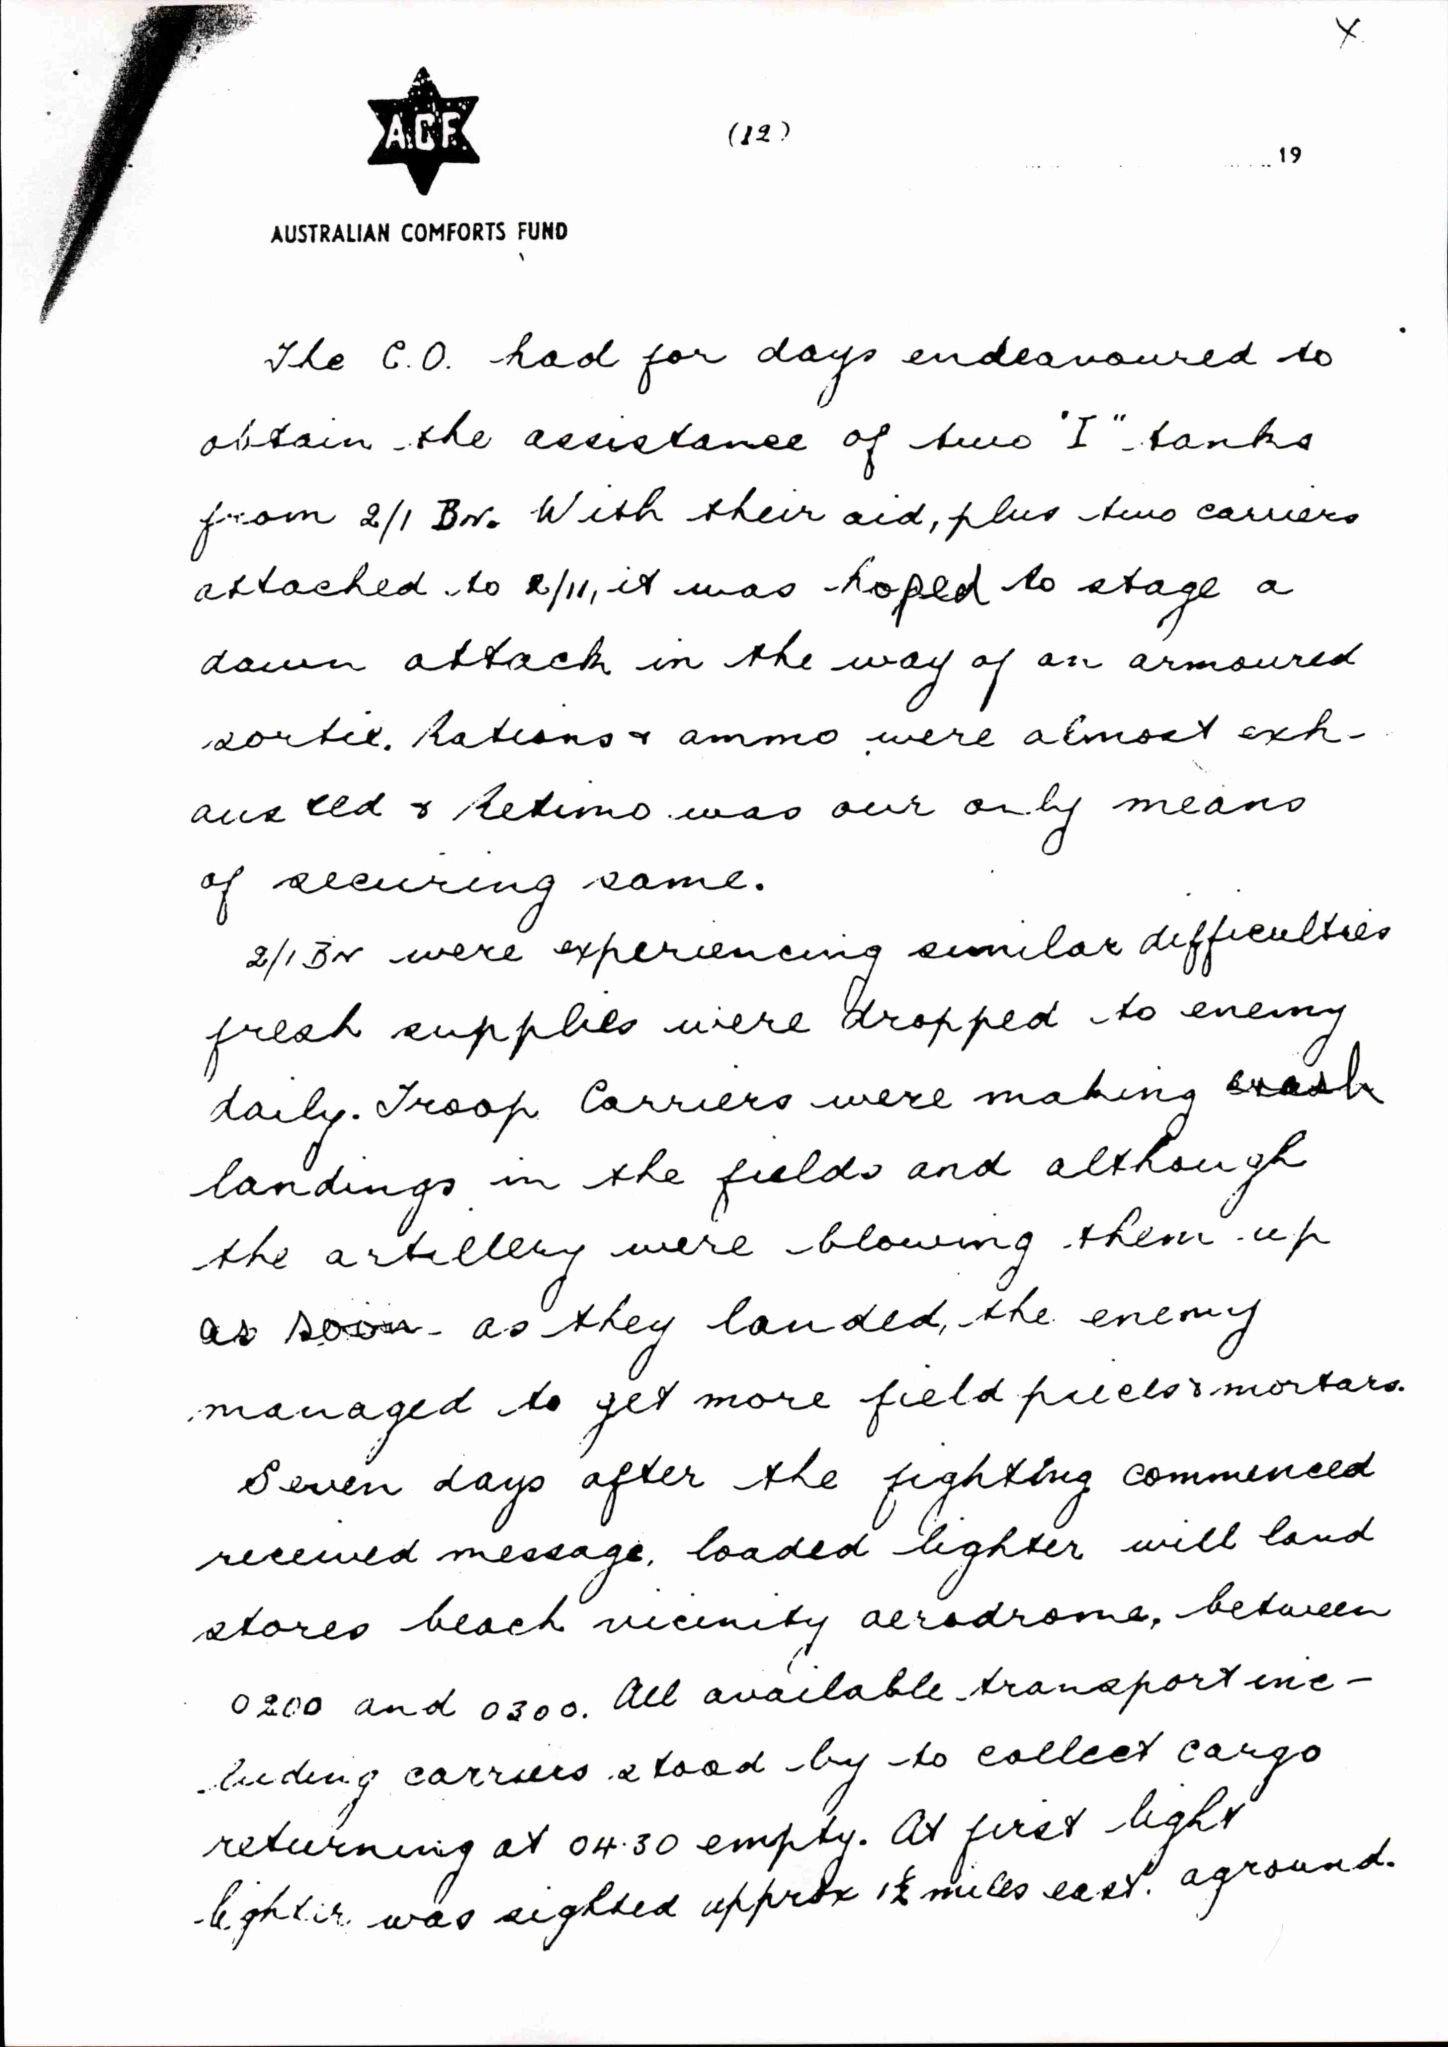 X
A.C.F.
(12)
19
AUSTRALIAN COMFORTS FUND
The C.O. had for days endeavoured to
obtain the assistance of two "I" tanks
from 2/1 Bn. With their aid, plus two carriers
attached to 2/11, it was hoped to stage a
dawn attack in the way of an armoured
sortie. Rations & ammo were almost exh-
austed & Retimo was our only means
of securing same.
2/1 Bn were experiencing similar difficulties
fresh supplies were dropped to enemy
daily. Troop Carriers were making crash
landings in the fields and although
the artillery were blowing them up
as soon as they landed, the enemy
managed to get more field pieces & mortars.
Seven days after the fighting commenced
received message, loaded lighter will land
stores beach vicinity aerodrome, between
0200 and 0300. All available transport inc-
luding carriers stood by to collect cargo
returning at 04.30 empty. At first light
lighter was sighted approx 1½ miles east. aground.